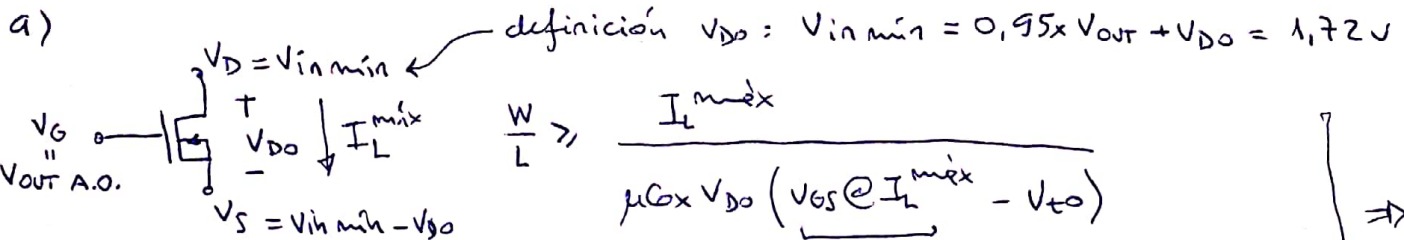 a)
definición V_DO : Vin mín = 0,95x V_OUT + V_DO = 1,72 V
V_D = Vin mín
V_G
"
V_OUT A.O.
+
V_DO
-
I_L^máx
V_S = Vin mín - V_DO
W/L ≥ I_L^màx / μCox V_DO (V_GS @ I_L^màx - V_t0)
⇒